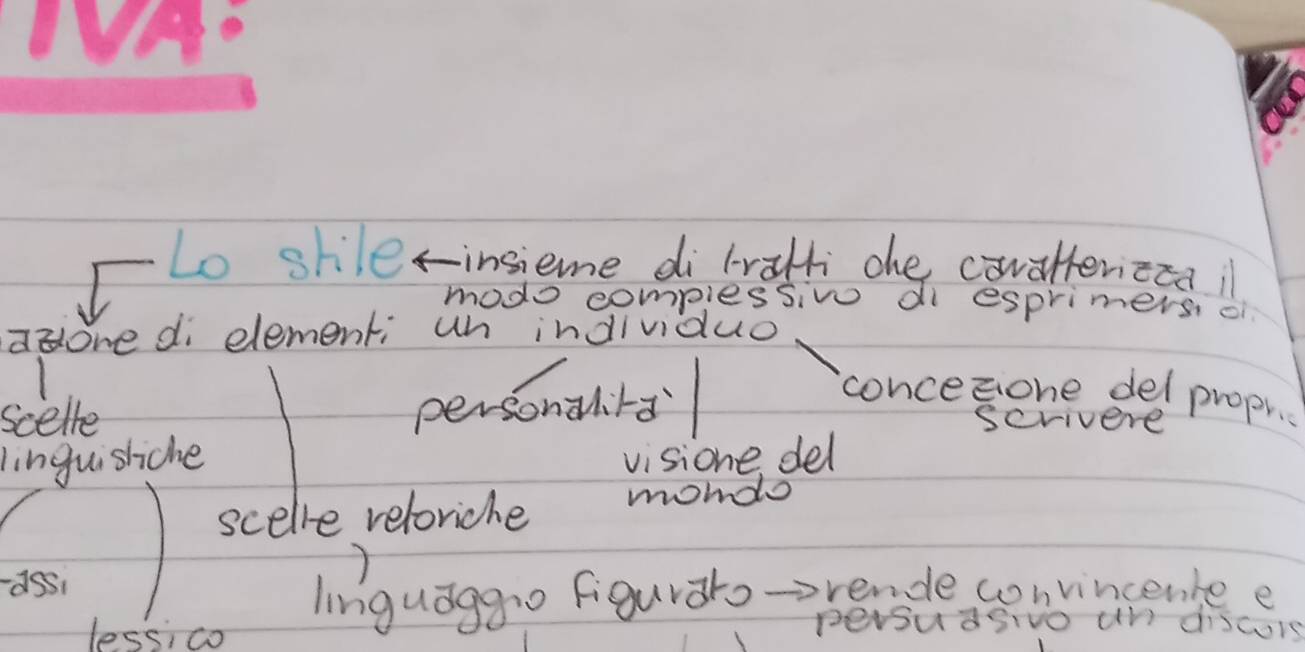 IVA:
Lo stile ←insieme di tratti che caratterizza il
modo complessivo di esprimersi di
azione di elementi un individuo
scelte personalità concezione del propri
scrivere
linguistiche visione del
mondo
scelte retoriche
-assi linguaggio figurato →rende convincente e
persuasivo un discors
lessico